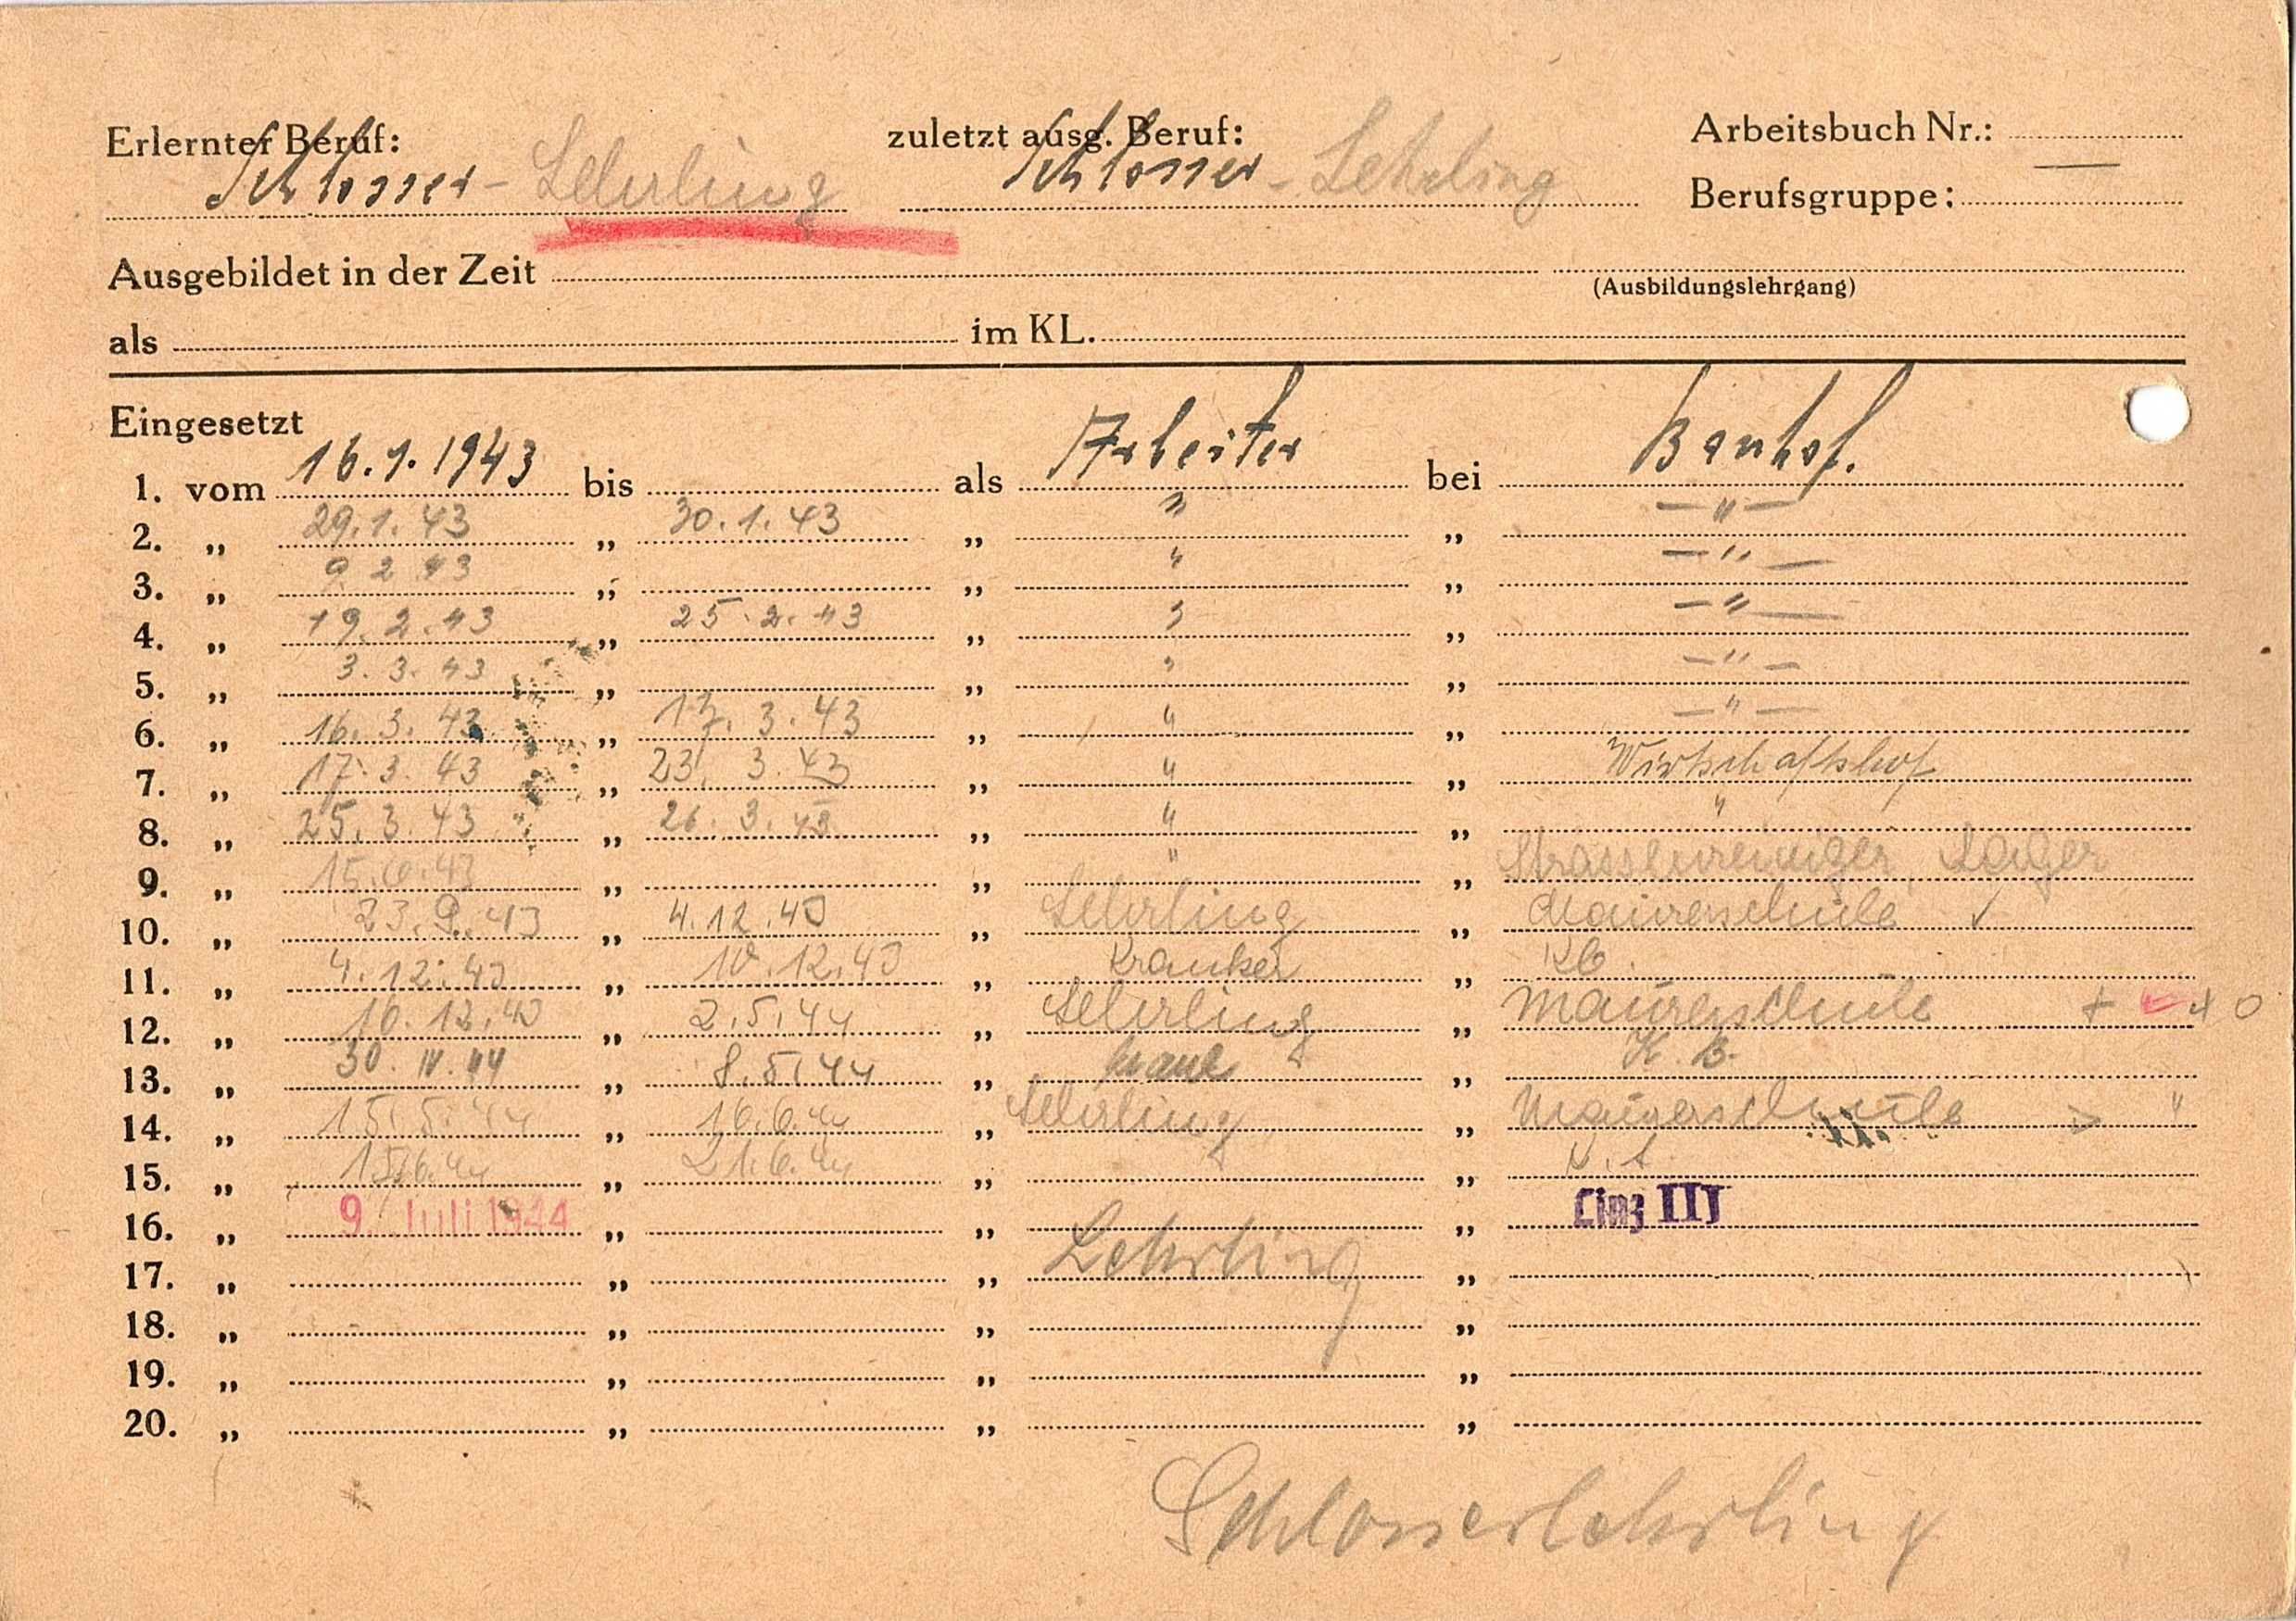 Erlernter Beruf: Schlosser - Lehrling zuletzt ausg. Beruf: Schlosser - Lehrling Arbeitsbuch Nr.: —
Berufsgruppe:
Ausgebildet in der Zeit
(Ausbildungslehrgang)
als im KL.
Eingesetzt
1. vom 16.1.1943 bis als Arbeiter bei Bauhof.
2. „ 29.1.43 „ 30.1.43 „ " „ — " —
3. „ 9 2 43 „ „ " „ — " —
4. „ 19.2.43 „ 25.2.43 „ " „ — " —
5. „ 3.3.43 „ „ " „ — " —
6. „ 16.3.43 „ 17.3.43 „ " „ — " —
7. „ 17.3.43 „ 23.3.43 „ " „ Wirtschaftshof
8. „ 25.3.43 „ 26.3.43 „ " „ "
9. „ 15.6.43 „ „ " „ Strassenreiniger, Lager
10. „ 23.9.43 „ 4.12.43 „ Lehrling „ Maurerschule ✓
11. „ 4.12.43 „ 10.12.43 „ Kranker „ KB.
12. „ 10.12.43 „ 2.5.44 „ Lehrling „ Maurerschule + + o
13. „ 30.IV.44 „ 8.5.44 „ krank „ K.B.
14. „ 15.5.44 „ 16.6.44 „ Lehrling „ Maurerschule > "
15. „ 15.6.44 „ 21.6.44 „ „
16. „ 9. Juli 1944 „ „ „ Linz III
17. „ „ „ Lehrling „
18. „ „ „ „
19. „ „ „ „
20. „ „ „ „
Schlosserlehrling